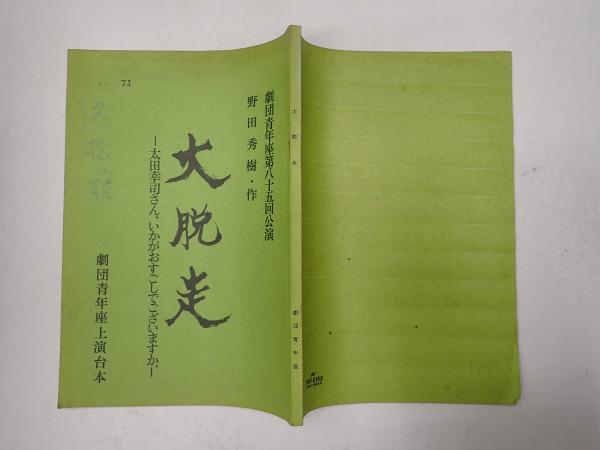 劇団青年座第八十五回公演
野田秀樹・作
大脱走
―太田幸司さん、いかがおすごしでございますか。―
劇団青年座上演台本
71
大脱走
劇団青年座